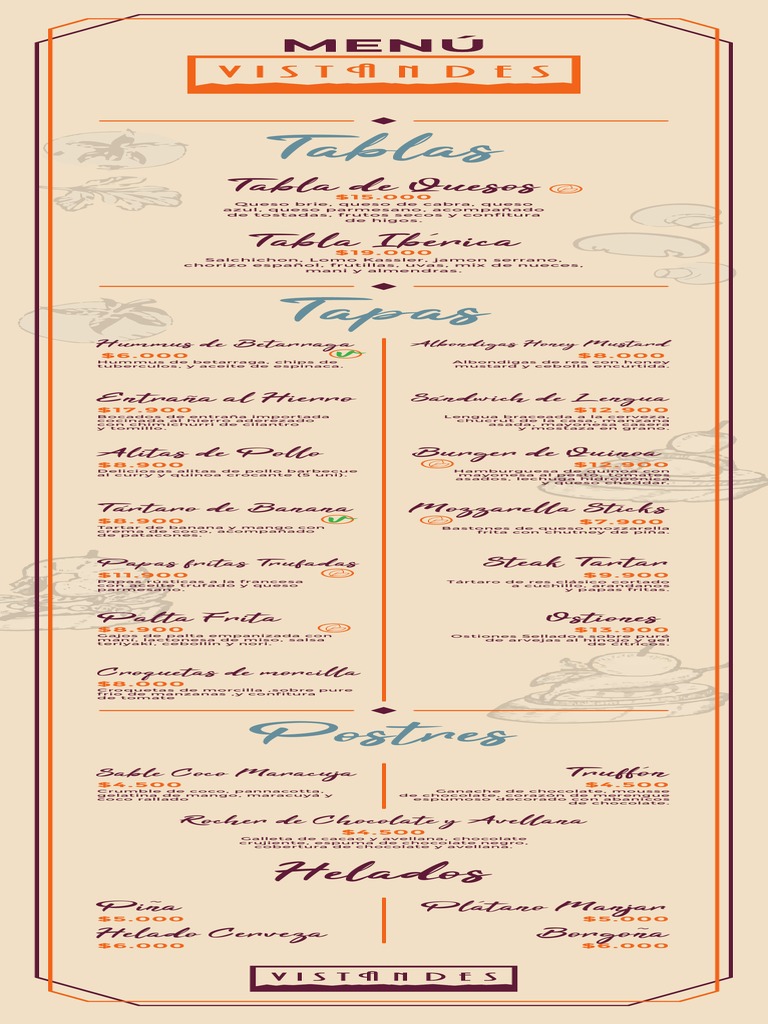 MENÚ
VISTANDES
Tablas
Tabla de Quesos
$15.000
Queso brie, queso de cabra, queso
azul, queso parmesano, acompañado
de tostadas, frutos secos y confitura
de higos.
Tabla Ibérica
$19.000
Salchichon, Lomo Kassler, jamon serrano,
chorizo español, frutillas, uvas, mix de nueces,
mani y almendras.
Tapas
Hummus de Betarraga
$6.000
Hummus de betarraga, chips de
tuberculos, y aceite de espinaca.
Entraña al Hierro
$17.900
Bocados de entraña importada
cocinada al hierro aderezado
con chimichurri de cilantro
y tomillo.
Alitas de Pollo
$8.900
Deliciosas alitas de pollo barbecue
al curry y quinoa crocante (5 uni).
Tartaro de Banana
$8.900
Tartar de banana y mango con
crema de coco, acompañado
de patacones.
Papas fritas Trufadas
$11.900
Papas rústicas a la francesa
con aceite trufado y queso
parmesano.
Palta Frita
$8.900
Gajos de palta empanizada con
maní, lactonesa de merquen, salsa
teriyaki, cebollin y nori.
Croquetas de morcilla
$8.000
Croquetas de morcilla .sobre pure
frio de manzanas .y confitura
de tomate
Albondigas Honey Mustard
$8.000
Albondigas de res con honey
mustard y cebolla encurtida.
Sándwich de Lengua
$12.900
Lengua braceada a la cerveza,
asada, mayonesa casera
y mostaza en grano.
Burger de Quinoa
$12.900
Hamburguesa de quinoa con
mayonesa al pesto, tomates
asados, lechuga hidropónica
y queso cheddar.
Mozzarella Sticks
$7.900
Bastones de queso mozzarella
frita con chutney de piña.
Steak Tartar
$9.900
Tártaro de res clásico cortado
a cuchillo, arandanos
y papas fritas.
Ostiones
$13.900
Ostiones Sellados sobre puré
de arvejas al hinojo y gel
de cítricos.
Postres
Sable Coco Maracuja
$4.500
Crumble de coco, pannacotta,
gelatina de mango, maracuya y
coco rallado
Truffón
$4.500
Ganache de chocolate, mousse
de chocolate, corazón de merengue
espumoso decorado con abanicos
de chocolate.
Rocher de Chocolate y Avellana
$4.500
Galleta de cacao y avellana, chocolate
crujiente, espuma de chocolate negro,
cobertura de chocolate y avellana.
Helados
Piña
$5.000
Helado Cerveza
$6.000
Plátano Manjar
$5.000
Borgoña
$6.000
VISTANDES